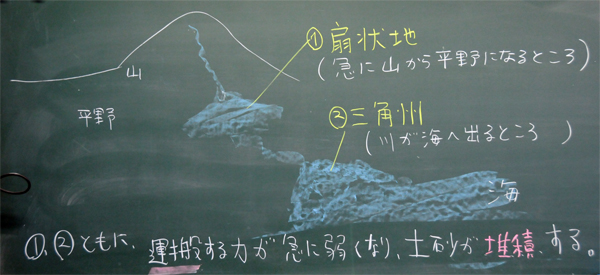 ①扇状地
(急に山から平野になるところ)
山
平野
②三角州
(川が海へ出るところ)
海
①,②ともに、運搬する力が急に弱くなり、土砂が堆積する。